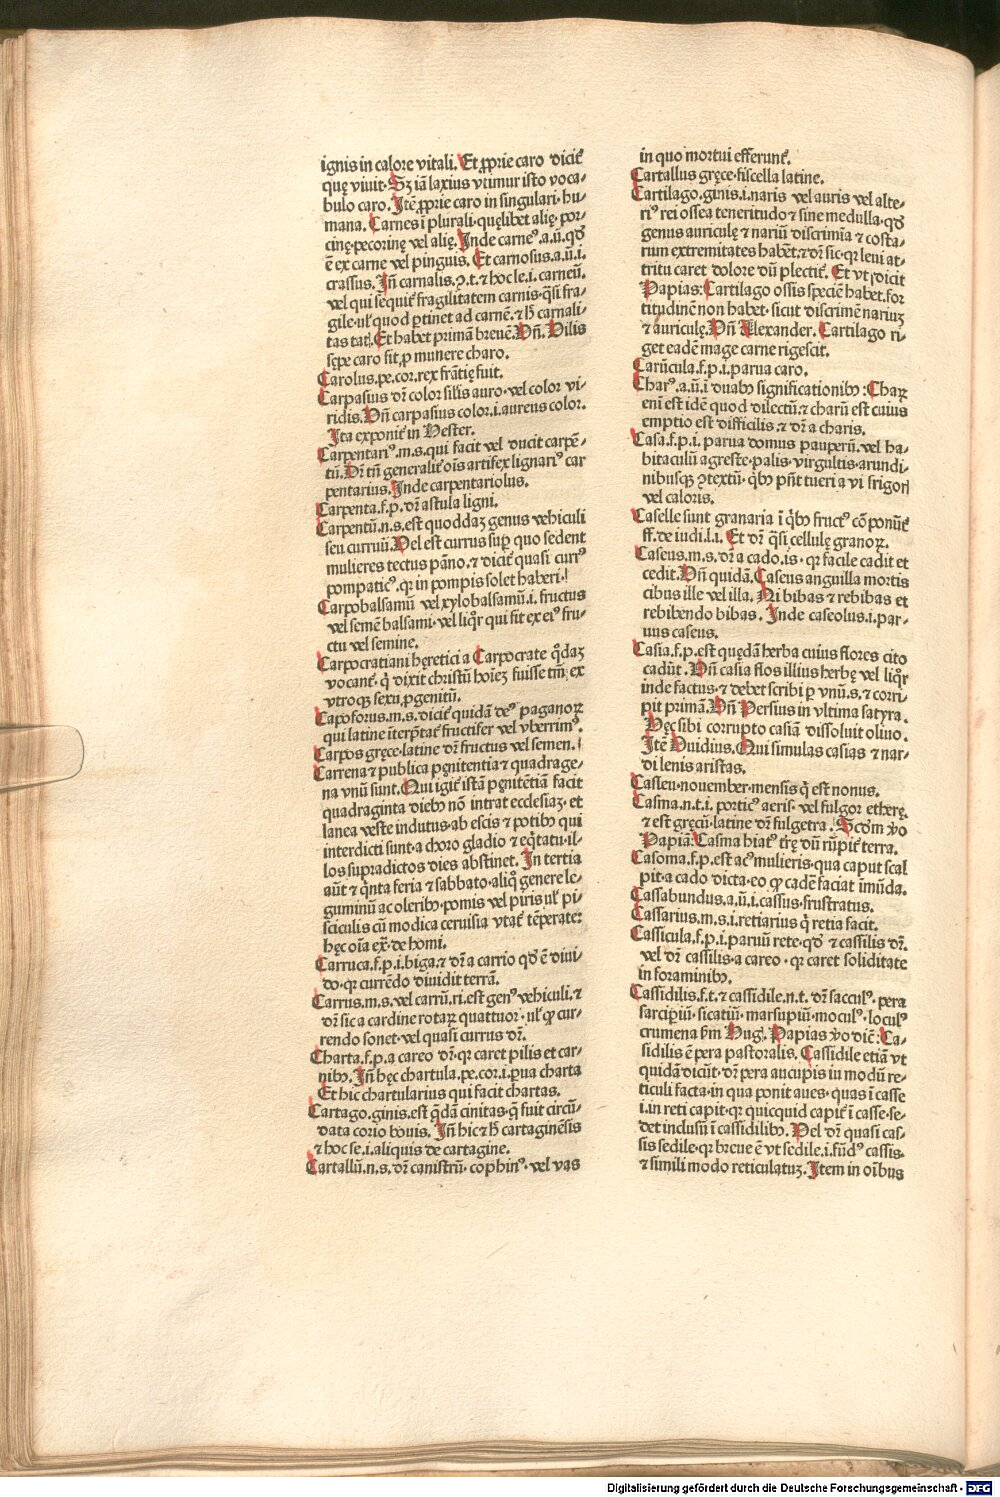 ignis in calore vitali. Et ꝓprie caro dicit᷑
quę viuit. Sꝫ iā laxius vtimur isto voca-
bulo caro. Itē ꝓprie caro in singulari. hu-
mana. Carnes ī plurali. quęlibet alię. por-
cinę. pecorinę vel alię. Inde carneꝰ. a. ū. qď
ē ex carne vel pinguis. Et carnosus. a. ū. i.
crassus. Iñ carnalis. ꝯ. t. ⁊ hoc le. i. carneū.
vel qui sequit᷑ fragilitatem carnis. q̄si fra-
gile. uł quod ꝑtinet ad carnē. ⁊ ħ carnali-
tas tat. Et habet primā breuē. Vñ. Vilis
sępe caro fit, ꝓ munere charo.
Carolus. pe. cor. rex frātię fuit.
Carpasius dr̄ color silis auro. vel color vi-
ridis. Vñ carpasius color. i. aureus color.
Ita exponit᷑ in Hester.
Carpentariꝰ. m. s. qui facit vel ducit carpē-
tū. Dr̄ tñ generalit᷑ oīs artifex lignariꝰ car
pentarius. Inde carpentariolus.
Carpenta. f. p. dr̄ astula ligni.
Carpentū. n. s. est quoddaꝫ genus vehiculi
seu curruū. Vel est currus suꝑ quo sedent
mulieres tectus pāno. ⁊ dicit᷑ quasi currꝰ
pompaticꝰ. qꝛ in pompis solet haberi.
Carpobalsamū vel xylobalsamū. i. fructus
vel semē balsami. vel liq̊r qui fit ex eiꝰ fru-
ctu vel semine.
Carpocratiani hęretici a Carpocrate q̊daꝫ
vocant᷑. q̇ dixit christū hoīeꝫ fuisse tm̄ ex
vtroqꝫ sexu ꝓgenitū.
Capoforus. m. s. dicit᷑ quidā deꝰ paganoꝝ
qui latine īterp̄tat᷑ fructifer vel vberrimꝰ.
Carpos gręce. latine dr̄ fructus vel semen.
Carrena ⁊ publica pęnitentia ⁊ quadrage-
na vnū sunt. Qui igit᷑ istā pęnitētiā facit
quadraginta diebꝰ nō intrat ecclesiaꝫ. et
lanea veste indutus. ab escis ⁊ potibꝰ qui
interdicti sunt. a choro gladio ⁊ eq̇tatu. il-
los supradictos dies abstinet. In tertia
aūt ⁊ q̇nta feria ⁊ sabbato. aliq̊ genere le-
guminū ac oleribꝰ. pomis vel piris uł pi-
sciculis cū modica ceruisia vtat᷑ tēperate:
hęc oīa ex̄. de homi.
Carruca. f. p. i. biga. ⁊ dr̄ a carrio qď ē diui-
do. qꝛ currēdo diuidit terrā.
Carrus. m. s. vel carrū. ri. est genꝰ vehiculi. ⁊
dr̄ sic a cardine rotaꝝ quattuor. uł ꝙ cur-
rendo sonet. vel quasi currus dr̄.
Charta. f. p. a careo dr̄. qꝛ caret pilis et car-
nibꝰ. Iñ hęc chartula. pe. cor. i. ꝑua charta
Et hic chartularius qui facit chartas.
Cartago. ginis. est q̄dā ciuitas. q̄ fuit circū-
data corio bouis. Iñ hic ⁊ ħ cartaginēsis
⁊ hoc se. i. aliquis de cartagine.
Cartallū. n. s. dr̄ canistrū. cophinꝰ. vel vas
in quo mortui efferunt᷑.
Cartallus gręce. fiscella latine.
Cartilago. ginis. i. naris vel auris vel alte-
riꝰ rei ossea teneritudo ⁊ sine medulla. qď
genus auriculę ⁊ nariū discrimīa ⁊ costa-
rum extremitates habēt. ⁊ dr̄ sic. qꝛ leui at-
tritu caret dolore dū plectit᷑. Et vt dicit
Papias: Cartilago ossis speciē habet. for
titudinē non habet. sicut discrimē nariuꝫ
⁊ auriculę. Vñ Alexander. Cartilago ri-
get eadē mage carne rigescit.
Carūcula. f. p. i. parua caro.
Charꝰ. a. ū. ī duabꝰ significationibꝰ: Chaꝝ
enī est idē quod dilectū. ⁊ charū est cuius
emptio est difficilis. ⁊ dr̄ a charis.
Casa. f. p. i. parua domus pauperū. vel ha-
bitaculū agreste. palis. virgultis. arundi-
nibusqꝫ ꝯtextū. q̇bꝰ pn̄t tueri a vi frigori
vel caloris.
Caselle sunt granaria ī q̇bꝰ fructꝰ cōponūt᷑
ff. de iudi. l. i. Et dr̄ q̄si cellulę granoꝝ.
Caseus. m. s. dr̄ a cado. is. qꝛ facile cadit et
cedit. Vñ quidā. Caseus anguilla mortis
cibus ille vel illa. Ni bibas ⁊ rebibas et
rebibendo bibas. Inde caseolus. i. par-
uus caseus.
Casia. f. p. est quędā herba cuius flores cito
cadūt. Vñ casia flos illius herbę vel liq̊r
inde factus. ⁊ debet scribi ꝑ vnū. s. ⁊ corri-
pit primā. Vñ Persius in vltima satyra.
Hęc sibi corrupto casiā dissoluit oliuo.
Itē Ouidius. Qui simulas casias ⁊ nar-
di lenis aristas.
Casleu. nouember. mensis q̇ est nonus.
Casma. n. t. i. porticꝰ aeris. vel fulgor etherę.
⁊ est gręcū. latine dr̄ fulgetra. Scdm v̊o
Papiā: Casma hiatꝰ tr̄ę dū rūpit᷑ terra.
Casoma. f. p. est acꝰ mulieris. qua caput scal
pit. a cado dicta. eo ꝙ cadē faciat īmūda.
Cassabundus. a. ū. i. cassus. frustratus.
Cassarius. m. s. i. retiarius q̇ retia facit.
Cassicula. f. p. i. paruū rete. qď ⁊ cassilis dr̄.
vel dr̄ cassilis. a careo. qꝛ caret soliditate
in foraminibꝰ.
Cassidilis. f. t. ⁊ cassidile. n. t. dr̄ sacculꝰ. pera
sarcipiū. sicatiū. marsupiū. moculꝰ. loculꝰ
crumena ẜm Hug. Papias v̊o dic̄: Ca-
sidilis ē pera pastoralis. Cassidile etiā vt
quidā dicūt. dr̄ pera aucupis in modū re-
ticuli facta. in qua ponit aues. quas ī casse
i. in reti capit. qꝛ quicquid capit᷑ ī casse. se-
det inclusū ī cassidilibꝰ. Vel dr̄ quasi cas-
sis sedile. qꝛ breue ē vt sedile. i. fūdꝰ cassis.
⁊ simili modo reticulatuꝫ. Item in oībus
Digitalisierung gefördert durch die Deutsche Forschungsgemeinschaft - DFG